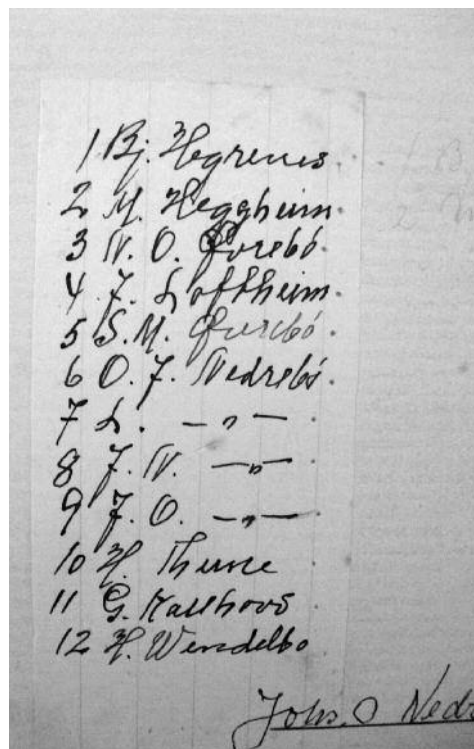 1 Bj. Hegrenes.
2 M. Heggheim.
3 N. O. Førebö.
4 J. Loftheim.
5 S. M. Førebö.
6 O. J. Nedrebö.
7 L. — „ — .
8 J. N. — „ — .
9 J. O. — „ — .
10 H. Thune
11 G. Kallhovd
12 H. Wendelbo
Johs. O Nedr